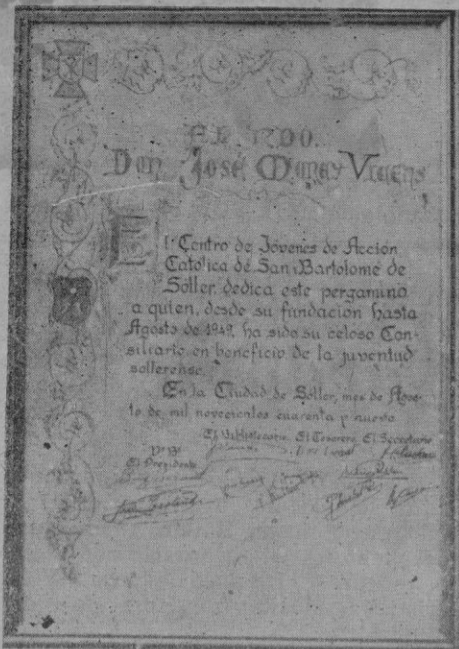 Don José Morey Vicens
El Centro de Jóvenes de Acción
Católica de San Bartolomé de
Sóller, dedica este pergamino
a quien, desde su fundación hasta
Agosto de 1949, ha sido su celoso Con-
siliario en beneficio de la juventud
sollerense.
En la Ciudad de Sóller, mes de Agos-
to de mil novecientos cuarenta y nueve
El Bibliotecario El Tesorero El Secretario
Vº Bº
El Presidente